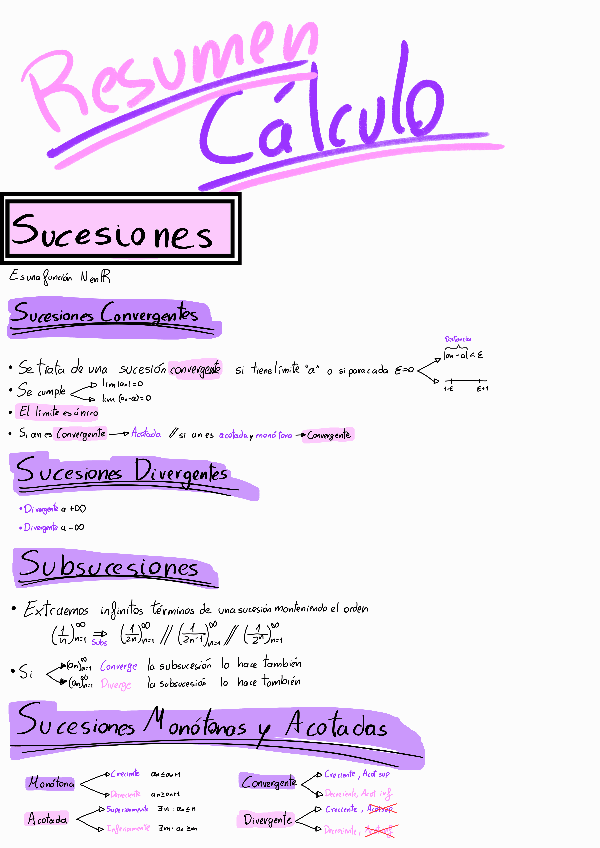 Resumen
Cálculo
Sucesiones
Es una función N en ℝ
Sucesiones Convergentes
Distancia
|an-a|<ε
• Se trata de una sucesión convergente si tiene límite "a" o si para cada ε=0
1-ε ε+1
• Se cumple
lim |an|=0
lim (an-a)=0
• El límite es único
• Si an es Convergente → Acotada // si an es acotada y monótona → Convergente
Sucesiones Divergentes
• Divergente a +∞
• Divergente a -∞
Subsucesiones
• Extraemos infinitos términos de una sucesión manteniendo el orden
(1/n)∞n=1 ⇒ Subs (1/2n)∞n=1 // (1/2n-1)∞n=1 // (1/2ⁿ)∞n=1
• Si
(an)∞n=1 Converge la subsucesión lo hace también
(an)∞n=1 Diverge la subsucesión lo hace también
Sucesiones Monótonas y Acotadas
Monótona
Creciente an≤an+1
Decreciente an≥an+1
Convergente
Creciente, Acot sup
Decreciente, Acot inf
Acotada
Superiormente ∃M: an≤M
Inferiormente ∃m: an≥m
Divergente
Creciente, Acot sup
Decreciente, Acot inf